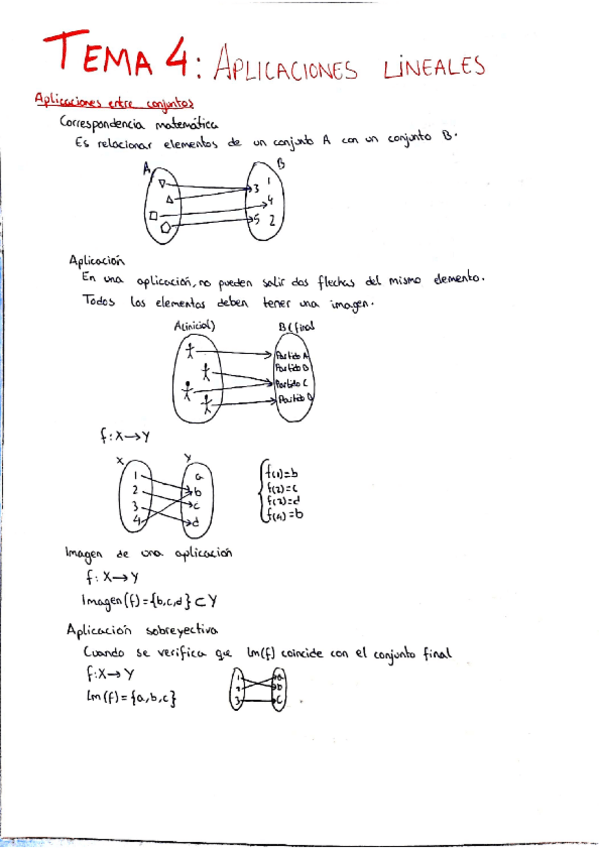 TEMA 4: APLICACIONES LINEALES
Aplicaciones entre conjuntos
Correspondencia matemática
Es relacionar elementos de un conjunto A con un conjunto B.
A B
1
3
4
5 2
Aplicación
En una aplicación, no pueden salir dos flechas del mismo elemento.
Todos los elementos deben tener una imagen.
A(inicial) B(final
Partido A
Partido B
Partido C
Partido D
f: X→Y
X Y
1 a
2 b
3 c
4 d
f(1)=b
f(2)=c
f(3)=d
f(4)=b
Imagen de una aplicación
f: X→Y
Imagen(f)={b,c,d}⊂Y
Aplicación sobreyectiva
Cuando se verifica que Im(f) coincide con el conjunto final
f:X→Y
Im(f)={a,b,c}
1 a
2 b
3 c